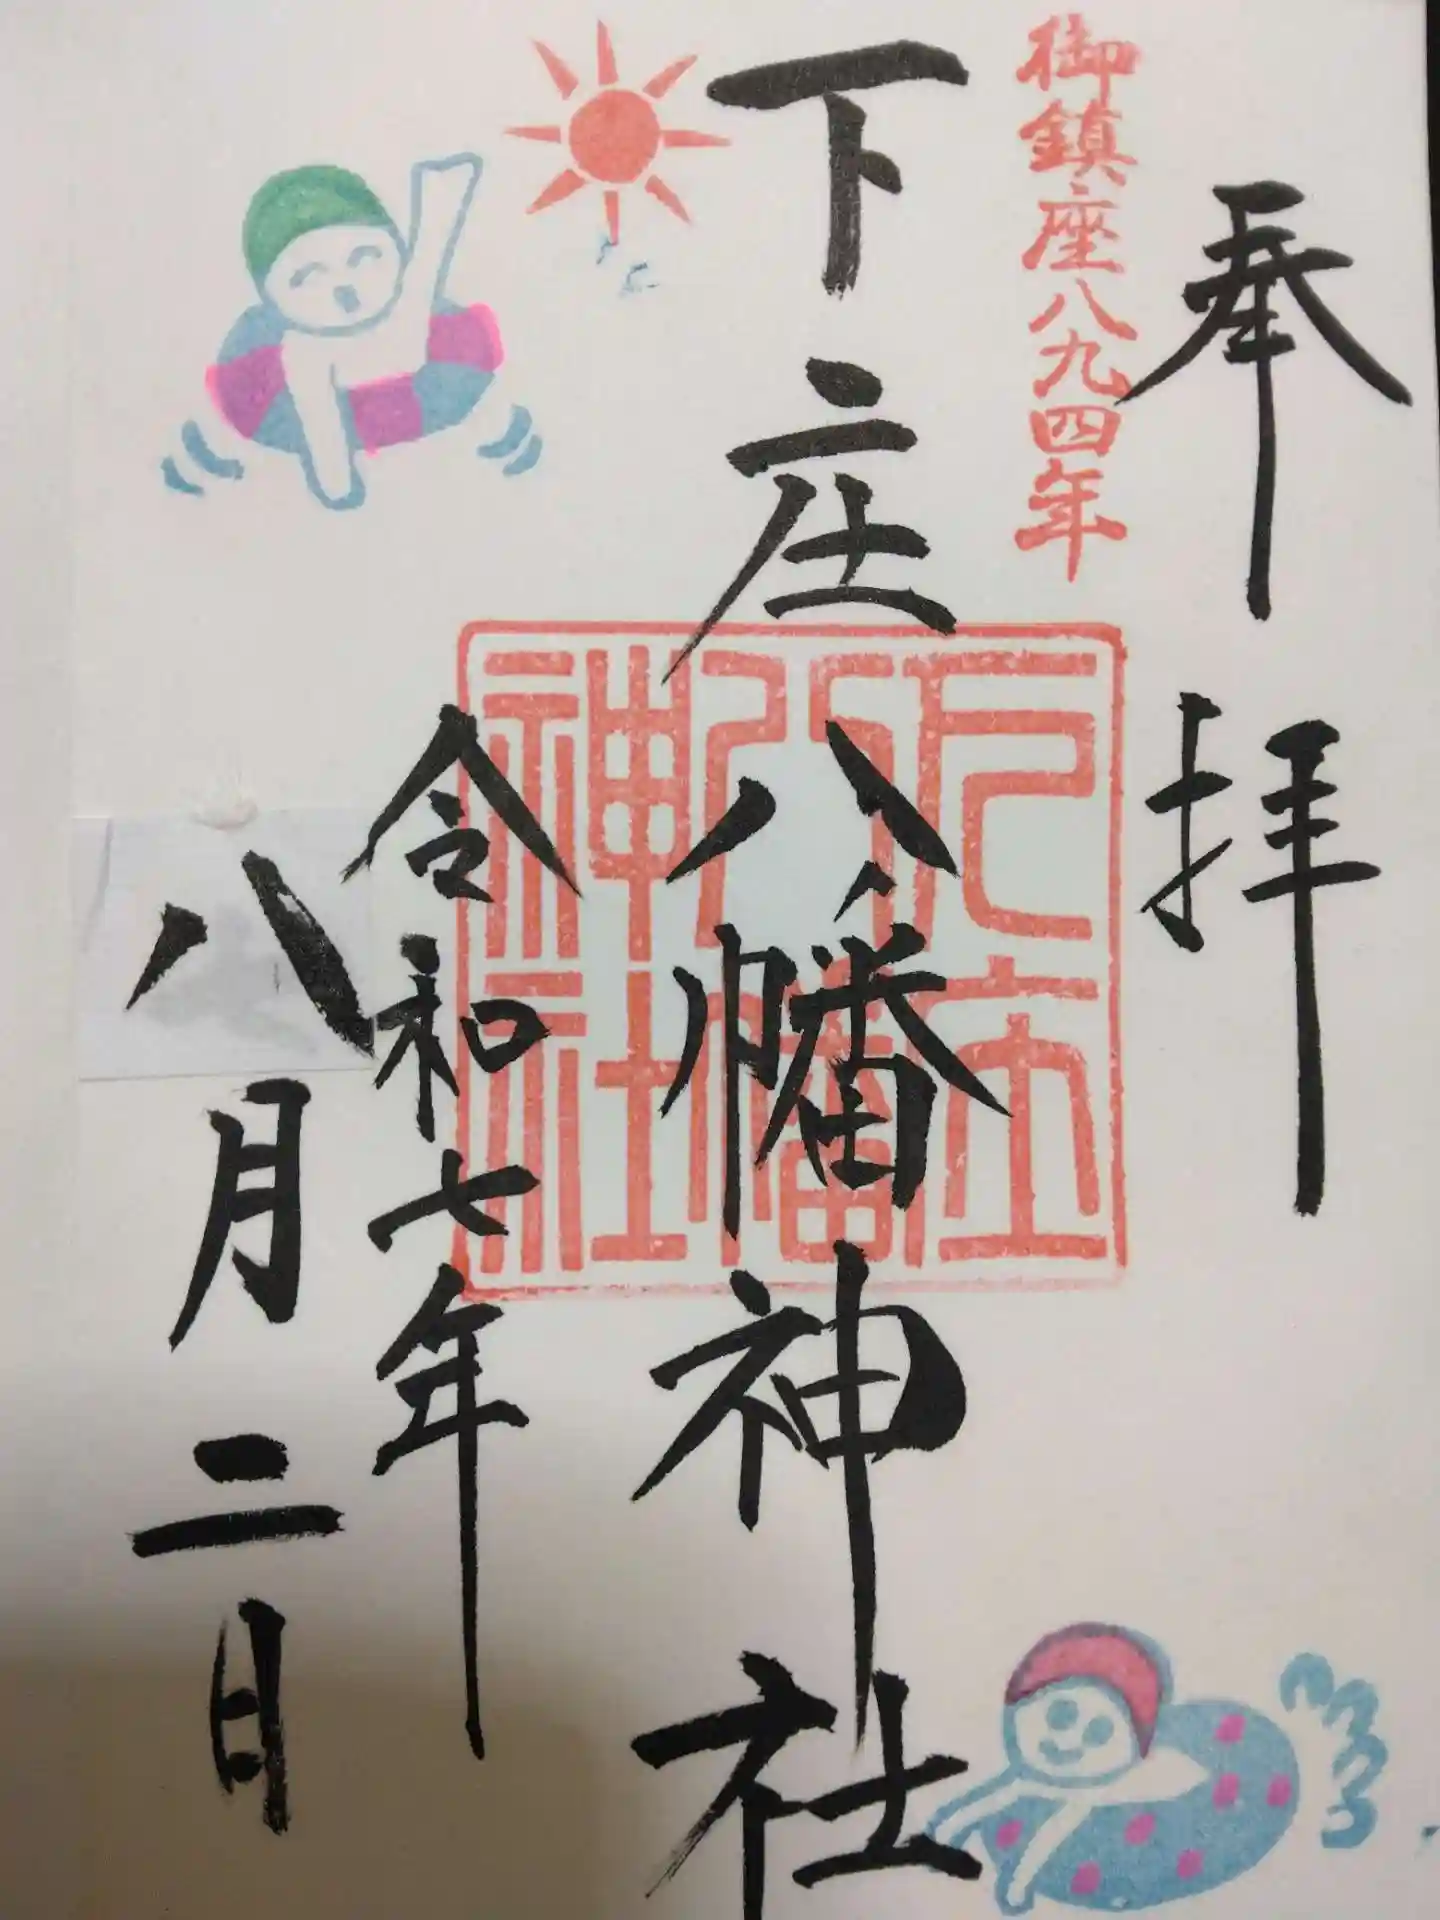 奉拝
御鎮座八九四年
下庄八幡神社
下庄八幡神社
令和七年
八月二日